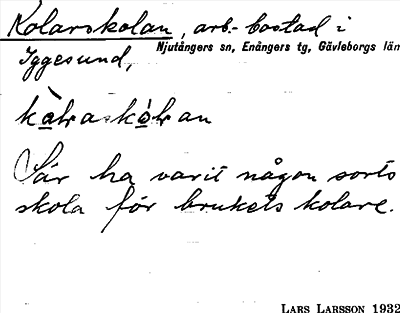 Kolarskolan, arb.-bostad i
Iggesund, Njutångers sn, Enångers tg, Gävleborgs län
Där ha varit någon sorts
skola för brukets kolare.
LARS LARSSON 1932